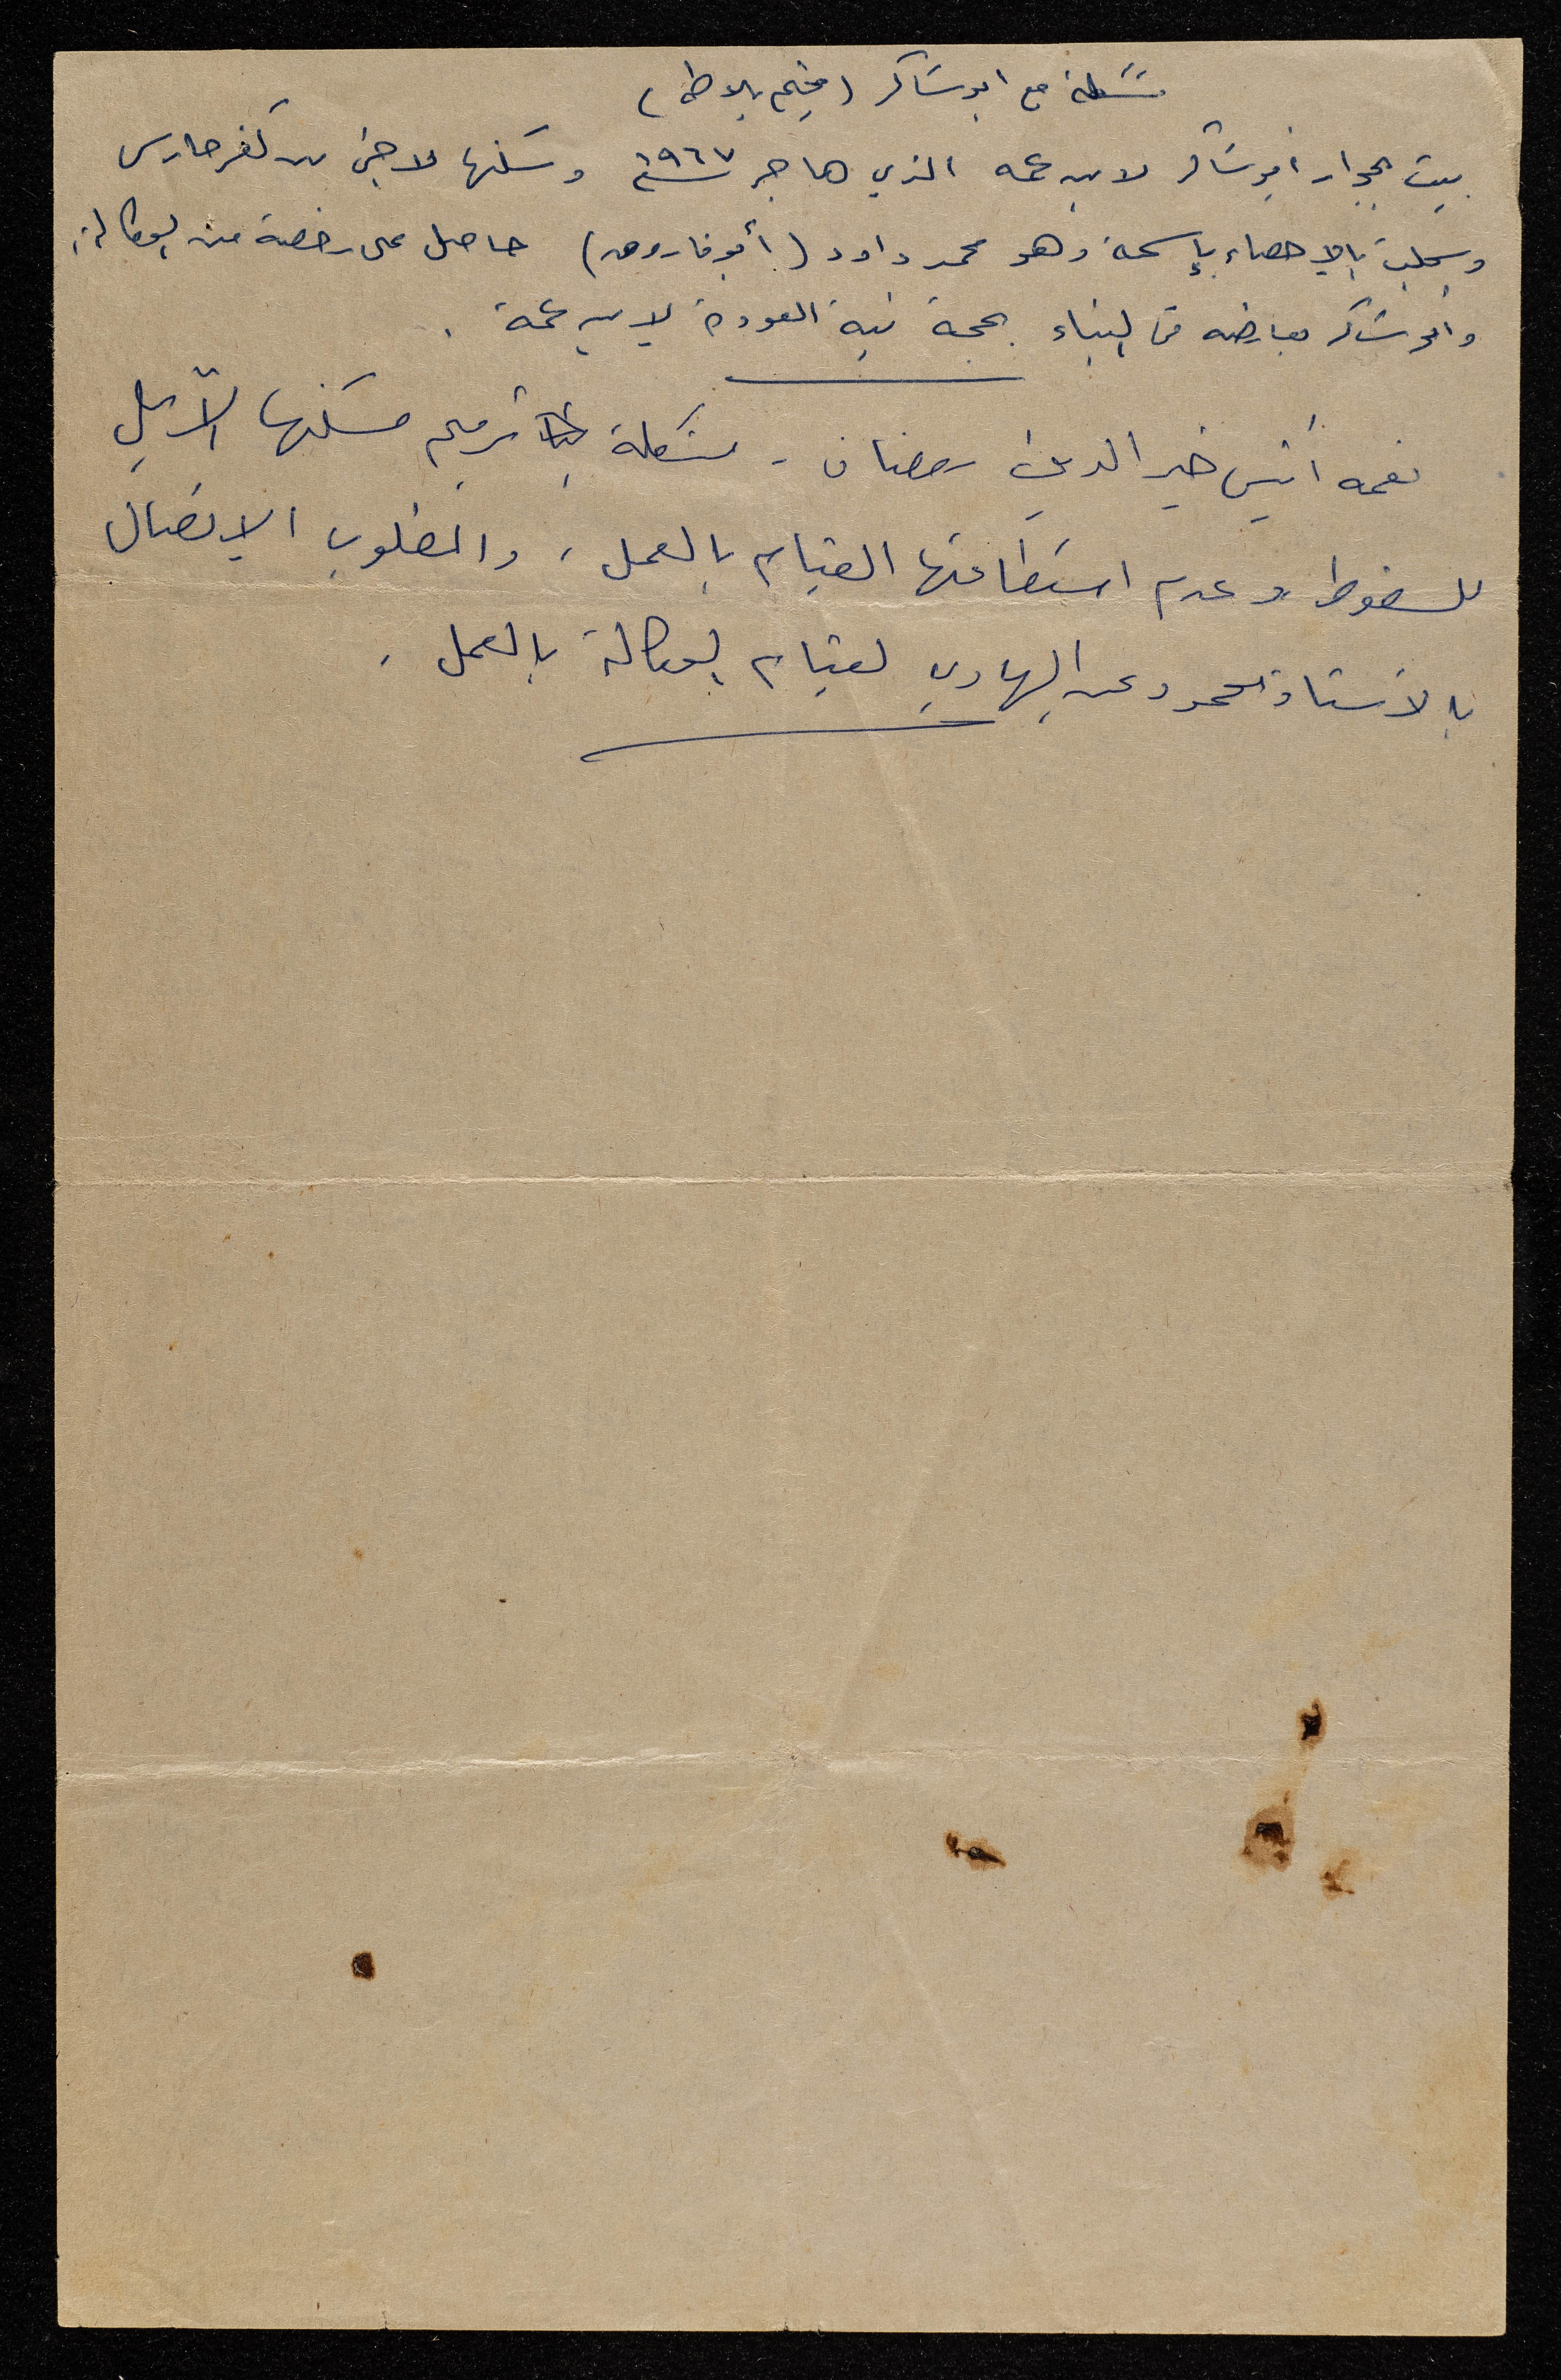 مشكلة مع ابو شاكر (مخيم بلاطه)
بيت بجوار ابو شاكر لابن عمه الذي هاجر سنة ١٩٦٧ وسكنها لاجئ من كفر حارس
وسجلت بالإحصاء بإسمه وهو محمد داود (أبو فاروق) حاصل على رخصة من الوكالة،
وابو شاكر يعارضه في البناء بحجة نية العودة لابن عمه .
نعمه أنيس خير الدين رمضان - مشكلة ترميم مسكنها الآيل
للسقوط وعدم استطاعتها القيام بالعمل، والمطلوب الإتصال
بالاستاذ محمود عبد الهادي لقيام الوكالة بالعمل .